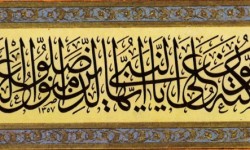 يصلون على النبي يا ايها الذين امنوا صلوا
١٣٥٧